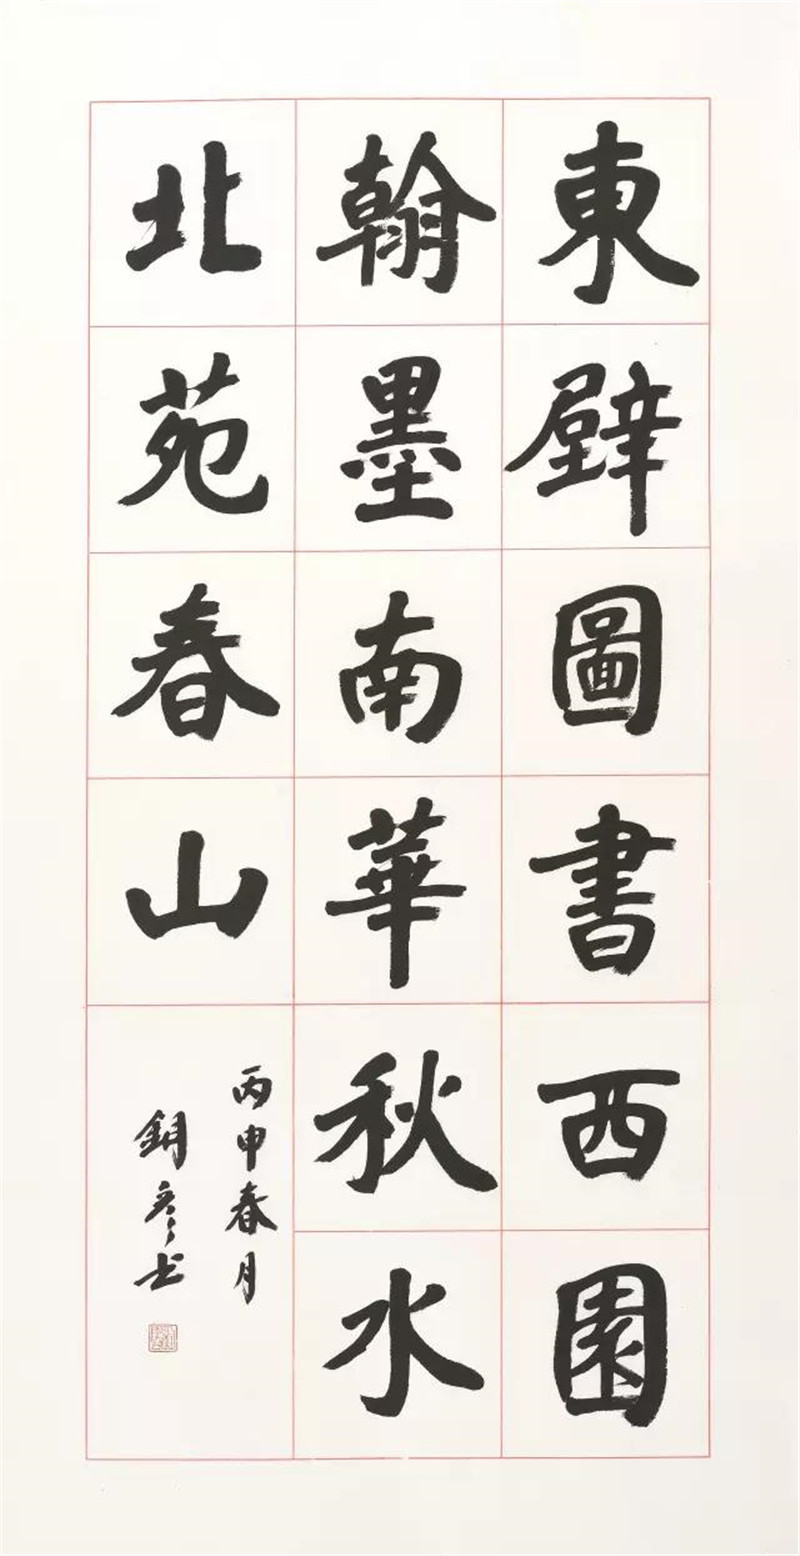 東壁圖書西園
翰墨南華秋水
北苑春山
丙申春月